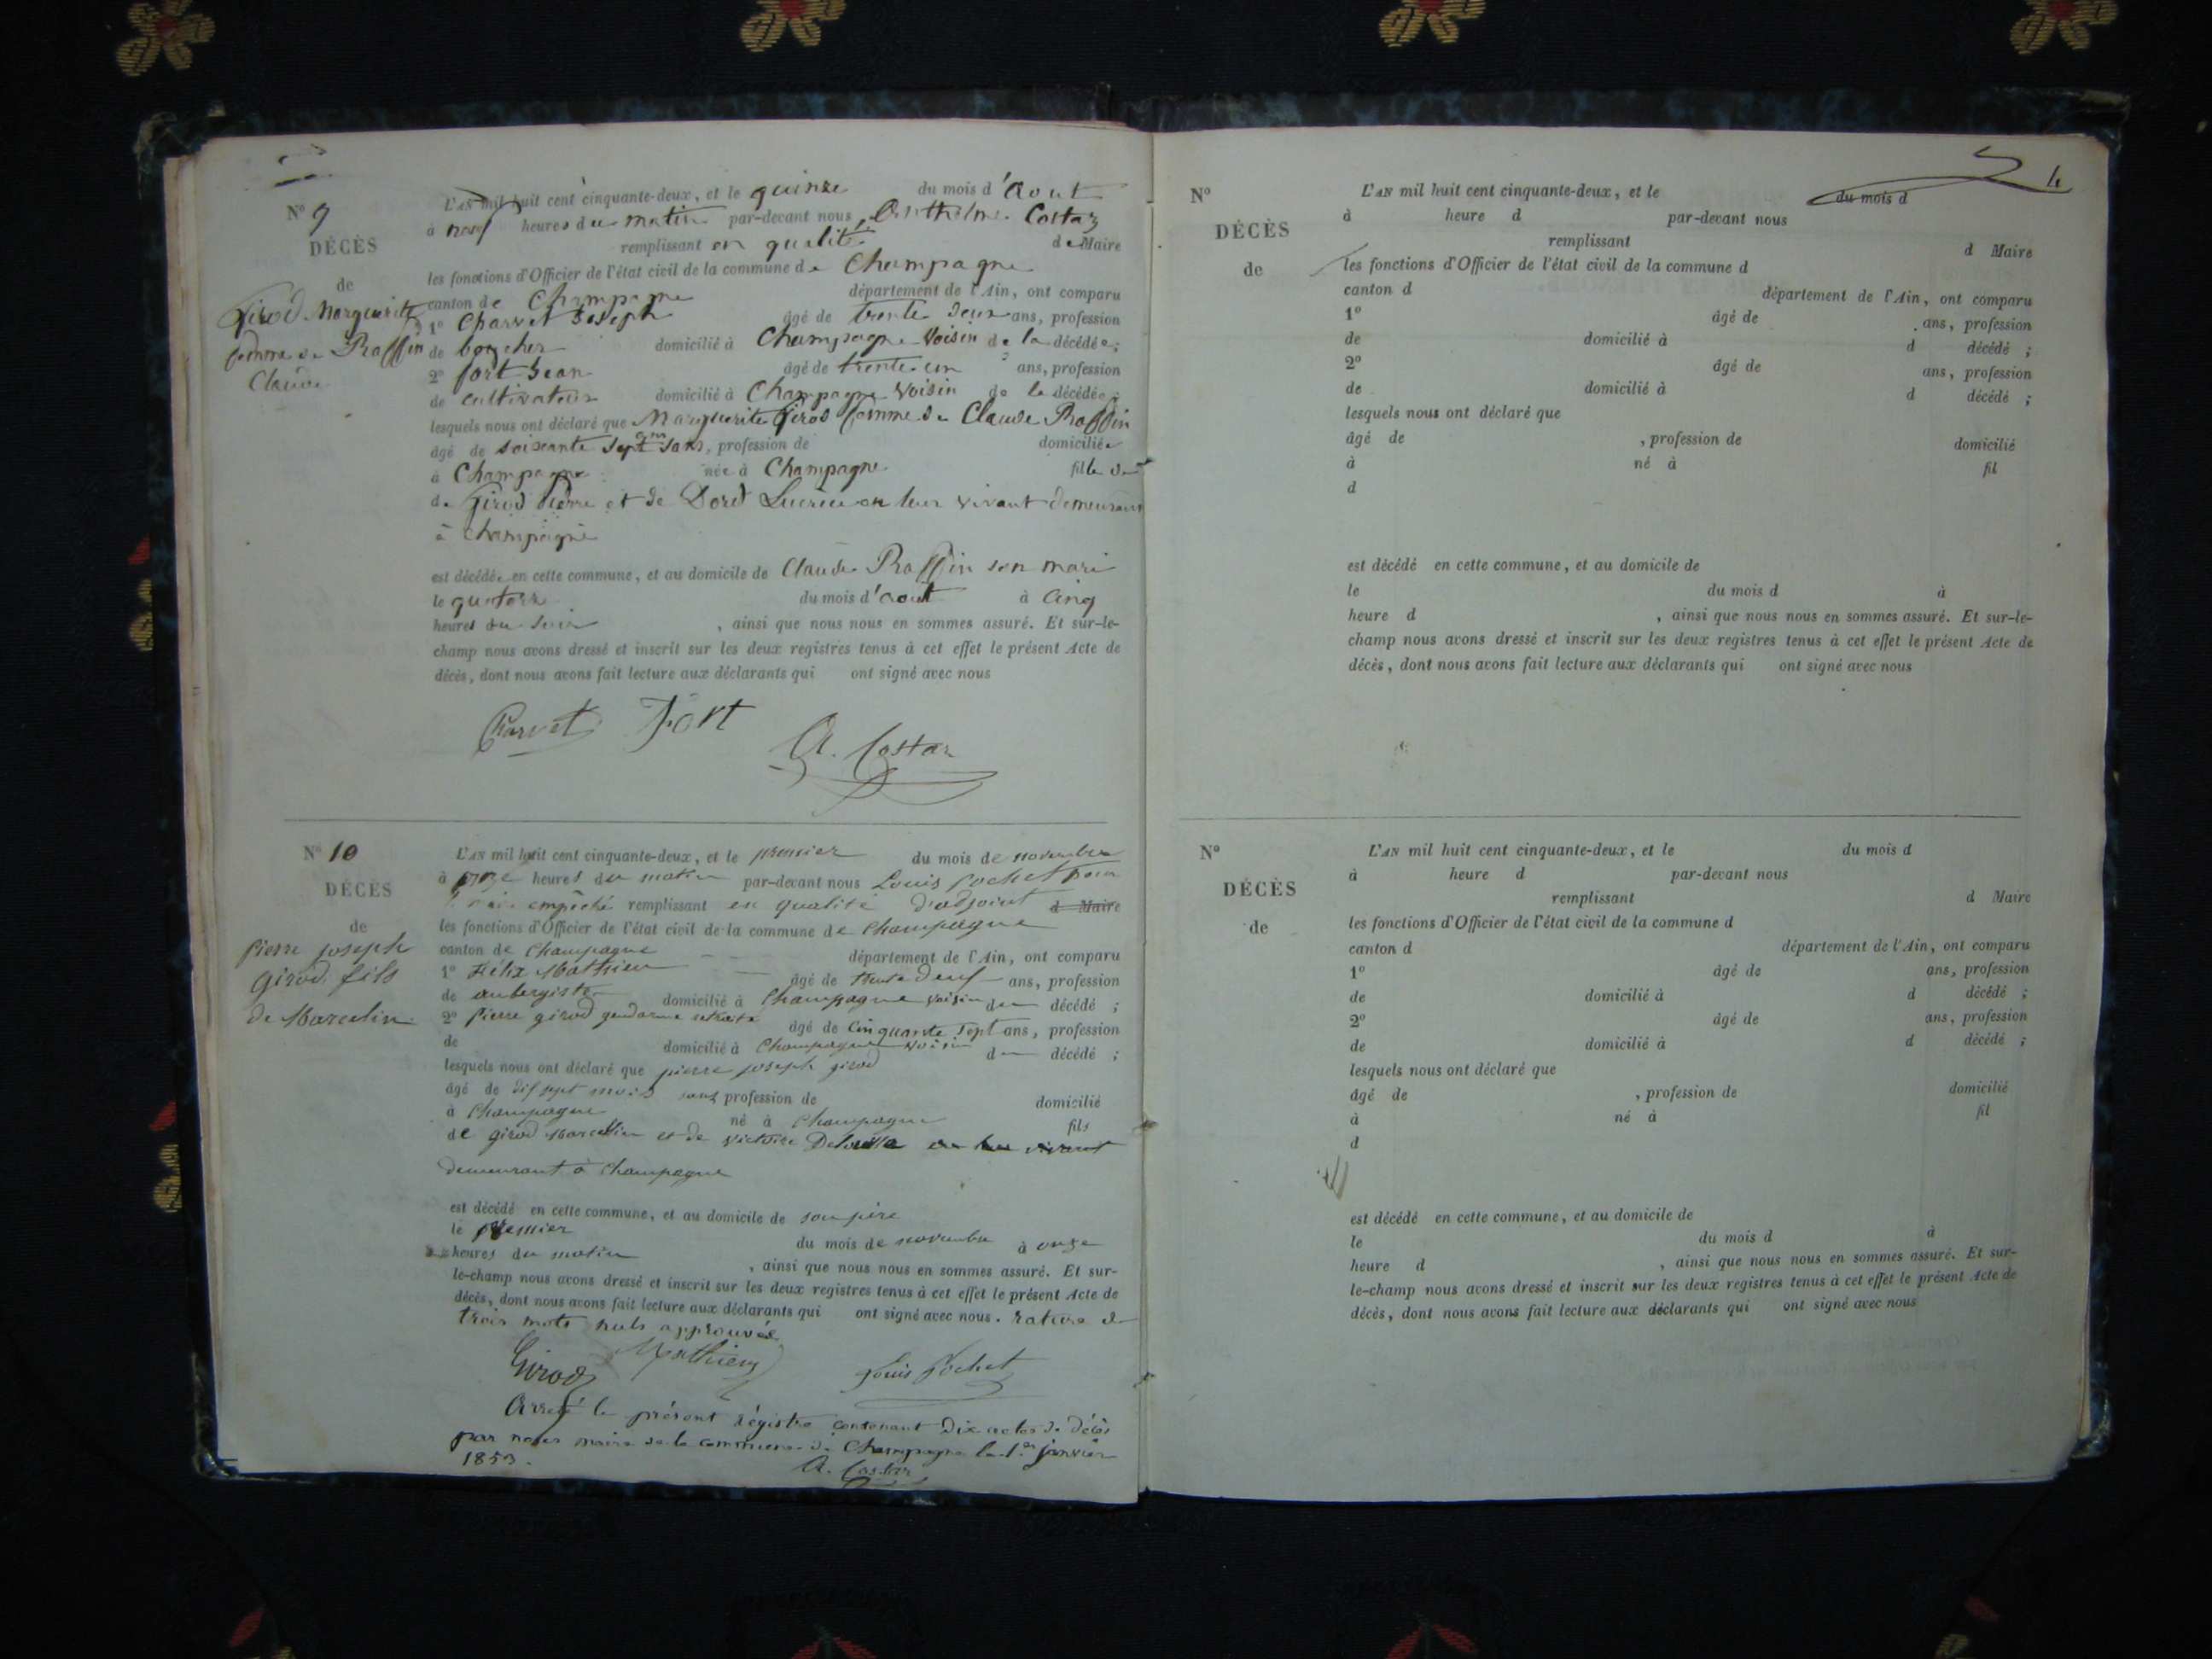 N° 9
DÉCÈS
de
Girod Marguerite
femme de Raffin
Claude
L'AN mil huit cent cinquante-deux, et le quinze du mois d'Aout
à neuf heures du matin par-devant nous Anthelme Costaz
remplissant en qualité de Maire
les fonctions d'Officier de l'état civil de la commune de Champagne
canton de Champagne département de l'Ain, ont comparu
1° Charvet Joseph âgé de trente deux ans, profession
de boucher domicilié à Champagne Voisin de la décédée;
2° fort Jean âgé de trente un ans, profession
de cultivateur domicilié à Champagne Voisin de la décédée;
lesquels nous ont déclaré que Marguerite Girod femme de Claude Raffin
âgé de soixante sept ans, profession de domiciliée
à Champagne née à Champagne fille de
de Girod Pierre et de Doret Lucrèce en leur vivant demeurant
à champagne
est décédée en cette commune, et au domicile de Claude Raffin son mari
le quatorze du mois d'aout à cinq
heures du Soir, ainsi que nous nous en sommes assuré. Et sur-le-
champ nous avons dressé et inscrit sur les deux registres tenus à cet effet le présent Acte de
décès, dont nous avons fait lecture aux déclarants qui ont signé avec nous
Charvet Fort
A. Costaz
N° 10
DÉCÈS
de
Pierre joseph
Girod fils
de Marcelin
L'AN mil huit cent cinquante-deux, et le premier du mois de novembre
à onze heures du matin par-devant nous Louis Pochet pour
maire empêché remplissant en qualité d'adjoint d Maire
les fonctions d'Officier de l'état civil de la commune de Champagne
canton de Champagne département de l'Ain, ont comparu
1° Félix Mathieu âgé de trente neuf ans, profession
de aubergiste domicilié à Champagne voisin du décédé ;
2° Pierre girod gendarme retraité âgé de Cinquante Sept ans, profession
de domicilié à Champagne voisin du décédé ;
lesquels nous ont déclaré que pierre joseph girod
âgé de dix sept mois sans profession de domicilié
à Champagne né à Champagne fils
de girod Marcellin et de Victoire en leur vivant
demeurant à Champagne
est décédé en cette commune, et au domicile de son père
le premier du mois de novembre à onze
heures du matin, ainsi que nous nous en sommes assuré. Et sur-
le-champ nous avons dressé et inscrit sur les deux registres tenus à cet effet le présent Acte de
décès, dont nous avons fait lecture aux déclarants qui ont signé avec nous. rature de
trois mots nuls approuvée
Girod Mathieu Louis Pochet
Arreté le présent régistre contenant Dix actes de décès
par nous maire de la commune de Champagne le 1er janvier
1853.
A. Costaz
4
N°
DÉCÈS
de
L'AN mil huit cent cinquante-deux, et le du mois d
à heure d par-devant nous
remplissant d Maire
les fonctions d'Officier de l'état civil de la commune d
canton d département de l'Ain, ont comparu
1° âgé de ans, profession
de domicilié à d décédé ;
2° âgé de ans, profession
de domicilié à d décédé ;
lesquels nous ont déclaré que
âgé de , profession de domicilié
à né à fil
d
est décédé en cette commune, et au domicile de
le du mois d à
heure d , ainsi que nous nous en sommes assuré. Et sur-le-
champ nous avons dressé et inscrit sur les deux registres tenus à cet effet le présent Acte de
décès, dont nous avons fait lecture aux déclarants qui ont signé avec nous
N°
DÉCÈS
de
L'AN mil huit cent cinquante-deux, et le du mois d
à heure d par-devant nous
remplissant d Maire
les fonctions d'Officier de l'état civil de la commune d
canton d département de l'Ain, ont comparu
1° âgé de ans, profession
de domicilié à d décédé ;
2° âgé de ans, profession
de domicilié à d décédé ;
lesquels nous ont déclaré que
âgé de , profession de domicilié
à né à fil
d
est décédé en cette commune, et au domicile de
le du mois d à
heure d , ainsi que nous nous en sommes assuré. Et sur-
le-champ nous avons dressé et inscrit sur les deux registres tenus à cet effet le présent Acte de
décès, dont nous avons fait lecture aux déclarants qui ont signé avec nous